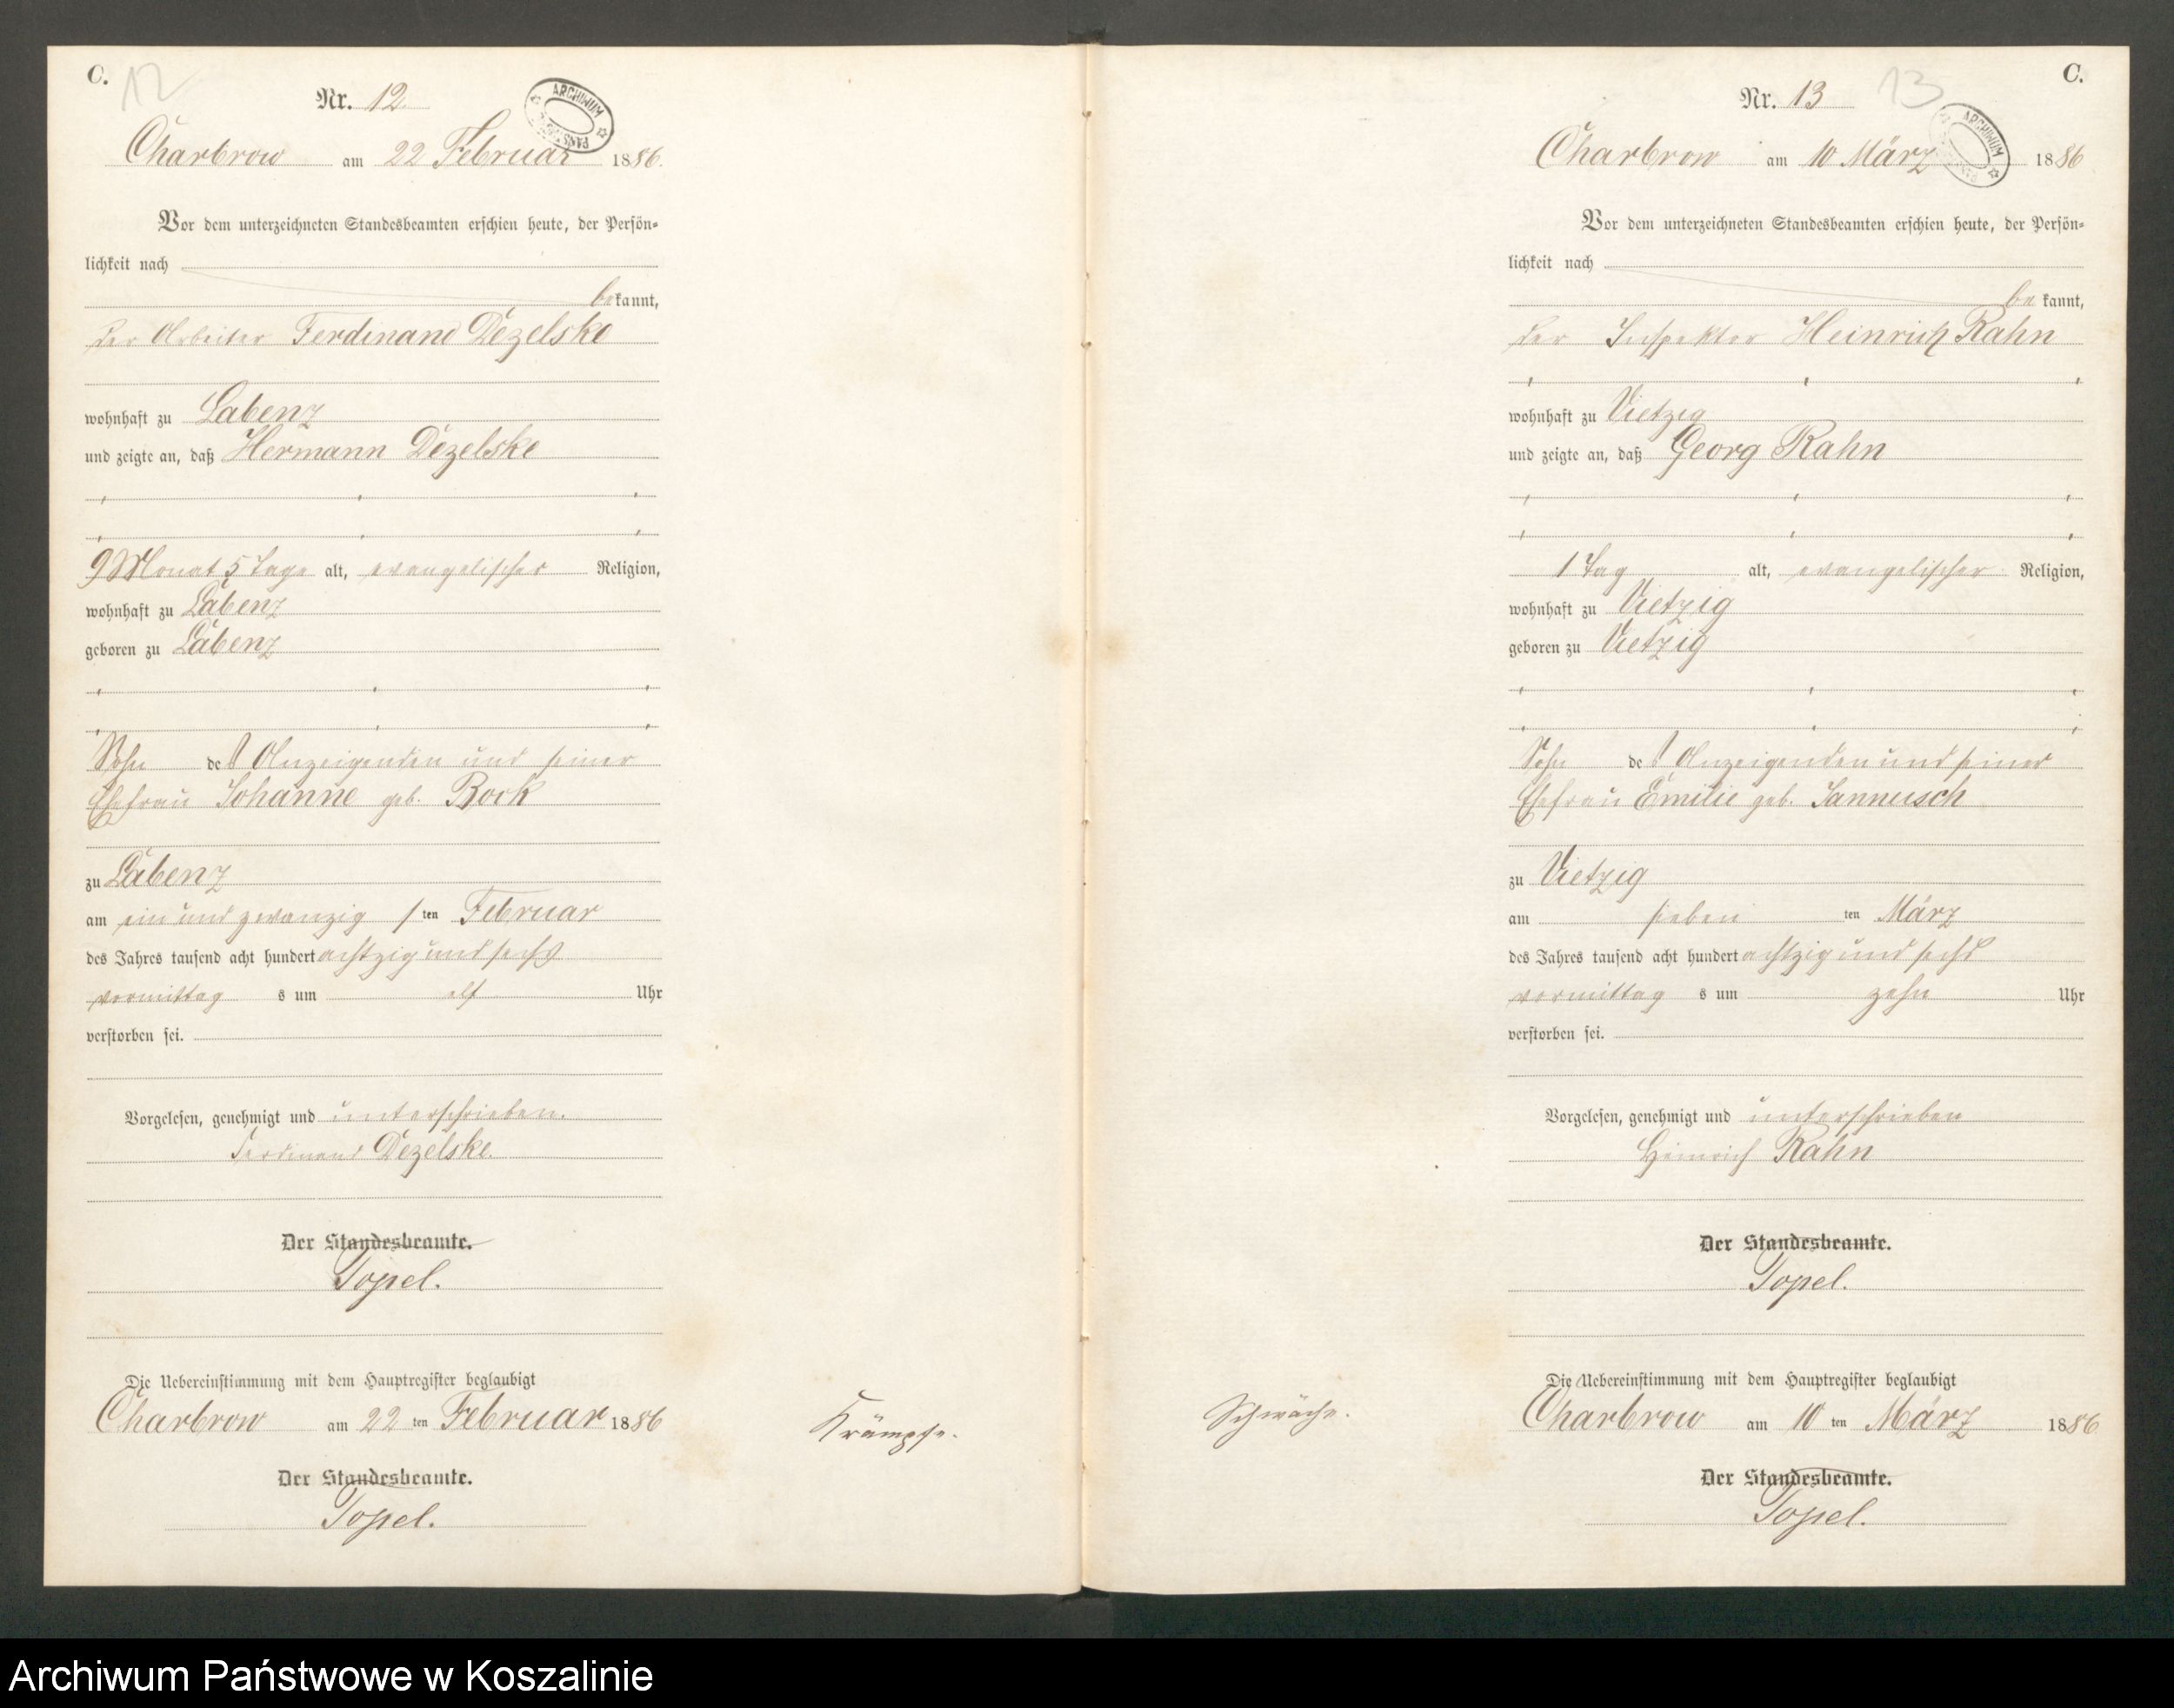 C.
12
Nr. 12
ARCHIWUM
Charbrow am 22 Februar 1886.
Vor dem unterzeichneten Standesbeamten erschien heute, der Persön-
lichkeit nach
bekannt,
der Arbeiter Ferdinand Dezelske
wohnhaft zu Labenz
und zeigte an, daß Hermann Dezelske
9 Monat 5 Tage alt, evangelischer Religion,
wohnhaft zu Labenz
geboren zu Labenz
Sohn des Anzeigenden und seiner
Ehefrau Johanne geb. Bock
zu Labenz
am ein und zwanzig / ten Februar
des Jahres tausend acht hundert achtzig und sechs
vormittag s um elf Uhr
verstorben sei.
Vorgelesen, genehmigt und unterschrieben.
Ferdinand Dezelske.
Der Standesbeamte.
Topel.
Die Uebereinstimmung mit dem Hauptregister beglaubigt
Charbrow am 22 ten Februar 1886
Der Standesbeamte.
Topel.
Krämpfe.
C.
13
Nr. 13
ARCHIWUM
Charbrow am 10 März 1886
Vor dem unterzeichneten Standesbeamten erschien heute, der Persön-
lichkeit nach
be kannt,
der Inspektor Heinrich Rahn
wohnhaft zu Vietzig
und zeigte an, daß Georg Rahn
1 Tag alt, evangelischer Religion,
wohnhaft zu Vietzig
geboren zu Vietzig
Sohn des Anzeigenden und seiner
Ehefrau Emilie geb. Jannusch
zu Vietzig
am sieben ten März
des Jahres tausend acht hundert achtzig und sechs
vormittag s um zehn Uhr
verstorben sei.
Vorgelesen, genehmigt und unterschrieben
Heinrich Rahn
Der Standesbeamte.
Topel.
Die Uebereinstimmung mit dem Hauptregister beglaubigt
Charbrow am 10 ten März 1886
Der Standesbeamte.
Topel.
Schwäche.
Archiwum Państwowe w Koszalinie